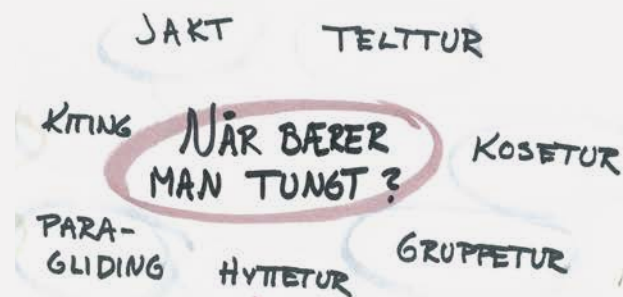 JAKT
TELTTUR
KITING
NÅR BÆRER
MAN TUNGT?
KOSETUR
PARA-
GLIDING
HYTTETUR
GRUPPETUR